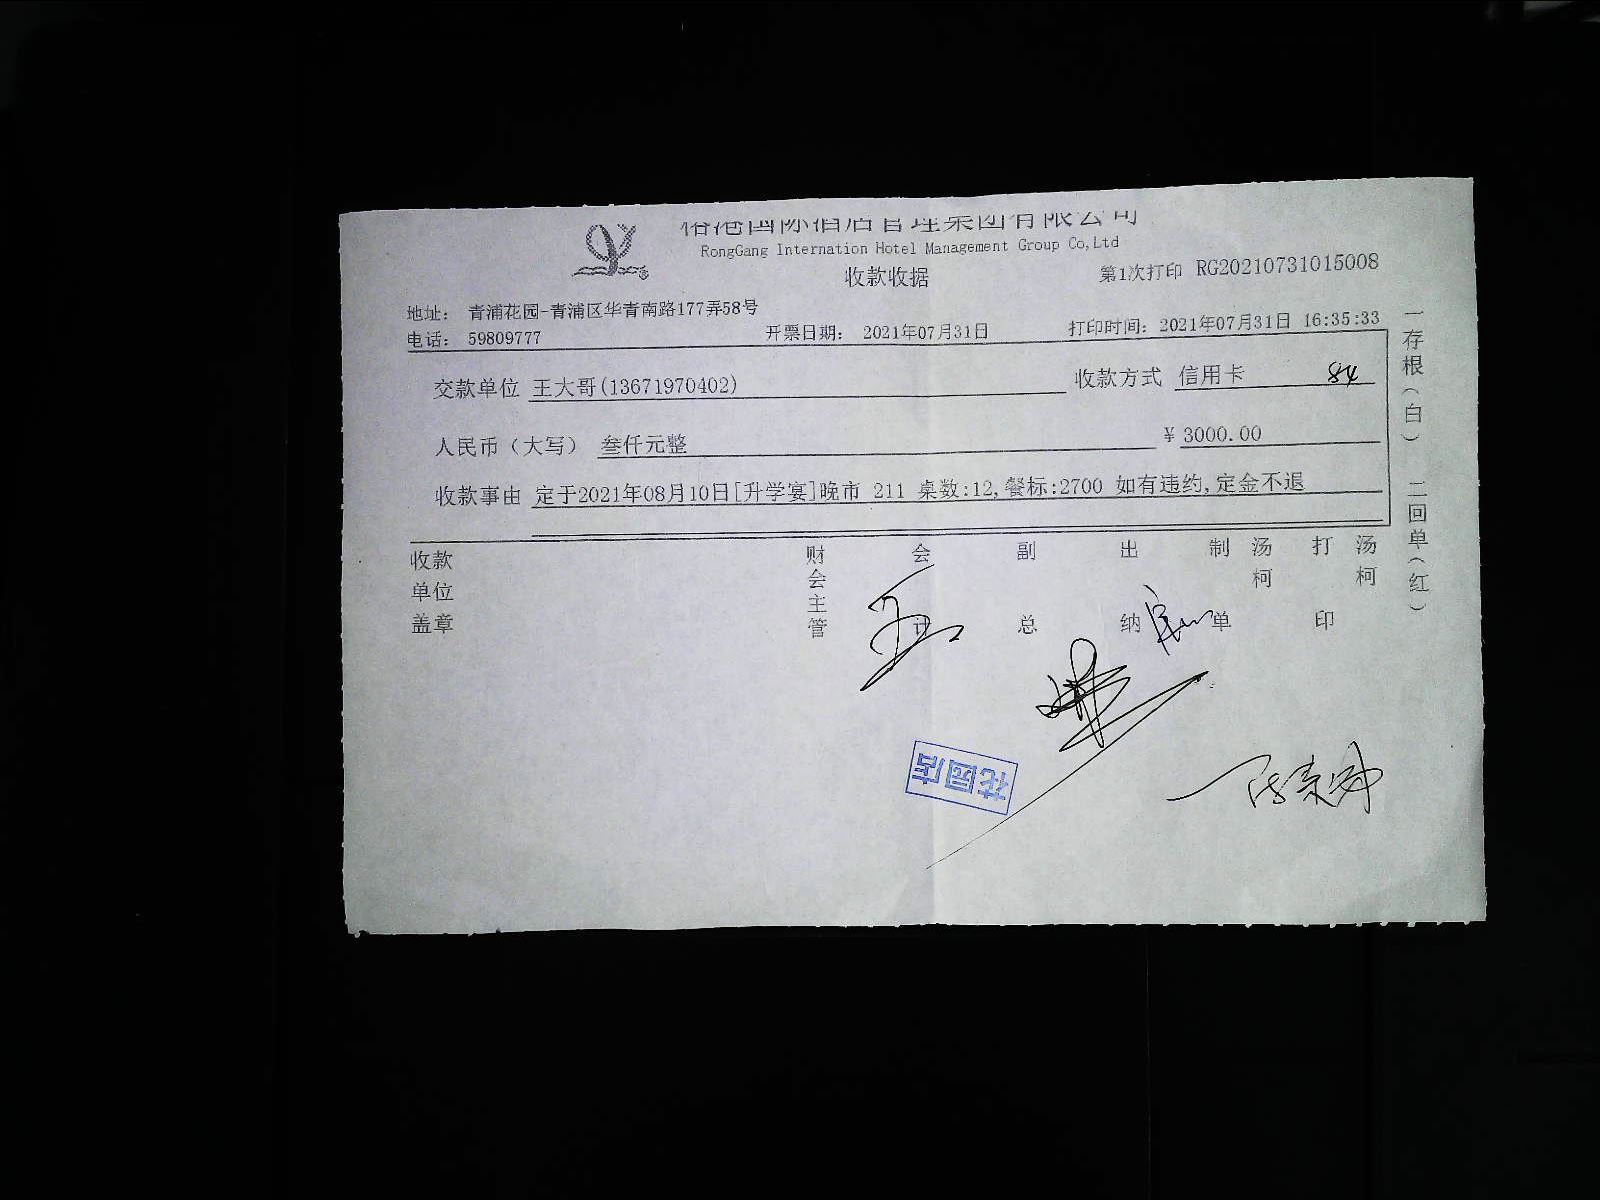 裕港国际酒店管理集团有限公司
RongGang Internation Hotel Management Group Co,Ltd
收款收据
第1次打印 RG20210731015008
地址： 青浦花园-青浦区华青南路177弄58号
电话： 59809777 开票日期： 2021年07月31日 打印时间：2021年07月31日 16:35:33
交款单位 王大哥(13671970402) 收款方式 信用卡 84
人民币（大写） 叁仟元整 ￥3000.00
收款事由 定于2021年08月10日[升学宴]晚市 211 桌数:12,餐标:2700 如有违约,定金不退
收款单位盖章 财会主管 会计 副总 出纳 制单 汤柯 打印 汤柯
一存根（白） 二回单（红）
花园店